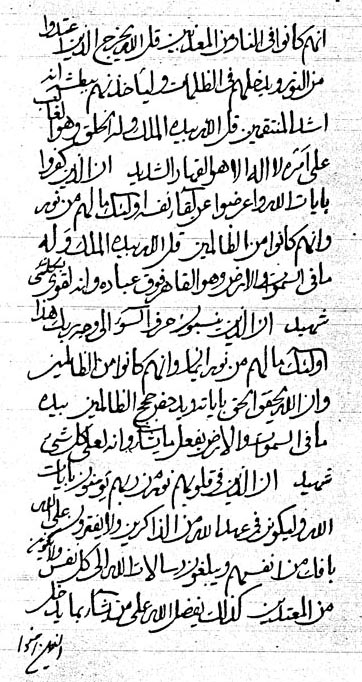 انهم كانوا فى النار من المعذبين قل الله يخرج الذين اعتدوا
من النور ويدخلهم فى الظلمات وليأخذنهم ببطشه انه
اشد المنتقمين قل الله بيده الملك وله الخلق وهو الغالب
على امره لا اله الا هو القهار الشديد ان الذين كفروا
بايات الله واعرضوا عن لقاء نفسه اولئك ما لهم من نور
وانهم كانوا من الظالمين قل الله بيده الملك وله
ما فى السموات والارض وهو القاهر فوق عباده وانه لقوى
شهيد ان الذين ينسبون حرف السوء الى وجه ربك هذا
اولئك ما لهم من نور ايمانهم كانوا من الظالمين
وان الله يحقق الحق باياته ويدحض حجج الظالمين بيده
ما فى السموات والارض يفعل ما يشاء وانه لعلى كل شىء
شهيد ان الذين فى قلوبهم نور من ربهم يؤمنون بايات
الله وليكونن فى عهد الله من الذاكرين ولا يفترون على الله
بافك من انفسهم ويبلغون رسالات الله الى كل نفس ولا يكونن
من المعتدين كذلك يفضل الله على من يشاء